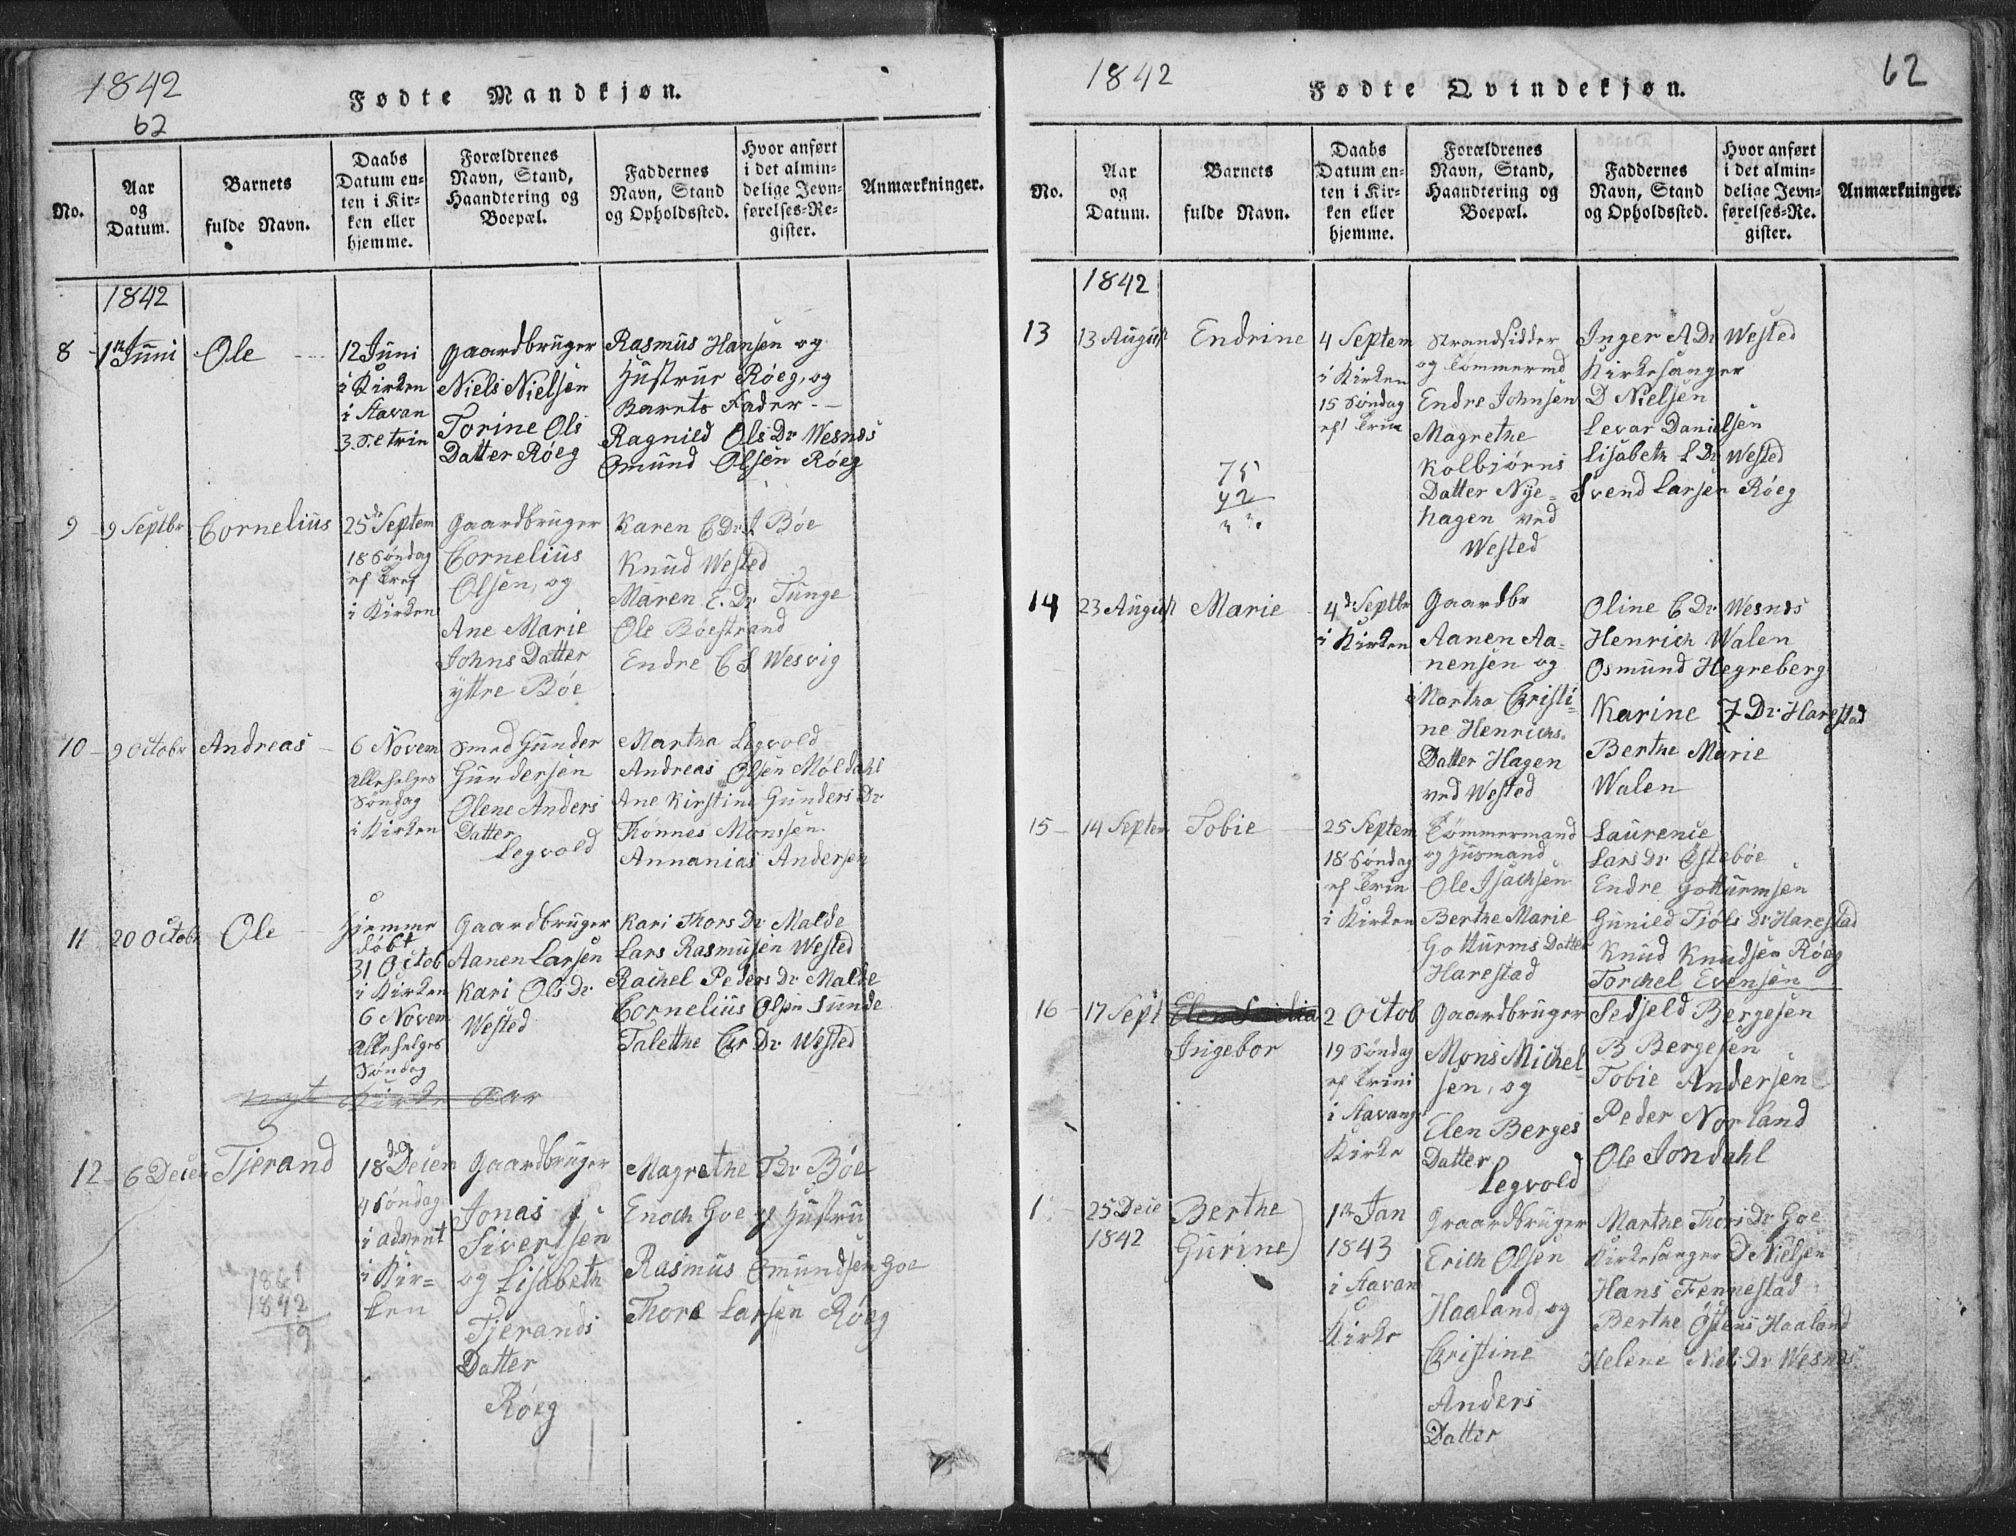 1842
62
Fødte Mandkjøn.
No.
Aar
og
Datum.
Barnets
fulde Navn.
Daabs
Datum en-
ten i Kir-
ken eller
hjemme.
Forældrenes
Navn, Stand,
Haandtering og
Boepæl.
Faddernes
Navn, Stand
og Opholdssted.
Hvor anført
i det almin-
delige Jevn-
førelses-Re-
gister.
Anmærkninger.
1842
8
1st Juni
Ole
12 Juni
i Kirken
i Stavan
3 S. e trin
Gaardbruger
Niels Nielsen
Torine Ols
Datter Røeg
Rasmus Hansen og
Hustrue Røeg, og
Barnets Fader
Ragnild Ols Dr Wesnes
Omund Olsen Røeg
9
9 Septbr
Cornelius
25de Septem
18 Søndag
ef Tref
i Kirken
Gaardbruger
Cornelius
Olsen, og
Ane Marie
Johns Datter
yttre Bøe
Karen E Dr I Bøe
Knud Wested
Maren E. Dr Tunge
Ole Bøestrand
Endre E S Wesvig
10
9 Octobr
Andreas
6 Novem
Allehelges
Søndag
i Kirken
Smed Gunder
Gundersen
Olene Anders
Datter
Legvold
Martha Legvold
Andreas Olsen Møldahl
Ane Kirstine Gunders Dr
Thønnes Monssen
Annanias Andersen
11
20 Octobr
Ole
Hjemme
Døbt
31 Octob
i Kirken
6 Novem
Allehelges
Søndag
Gaardbruger
Aanen Larsen
Kari Ols Dr
Wested
Kari Thors Dr Malde
Lars Rasmusen Wested
Rachel Peders Dr Malde
Cornelius Olsen Sunde
Talette Chr Dr Wested
nyt Kirke Aar
12
6 Decem
Tjerand
18de Decem
4 Søndag
i advent
i Kir=
ken
Gaardbruger
Jonas
Sivertsen
og Lisabeth
Tjerands
Datter
Røeg
Magrethe T Dr Bøe
Enoch Goe og Hustru
Rasmus Omundsen Goe
Thore Larsen Røeg
1861
1842
19
1842
62
Fødte Qvindekjøn.
No.
Aar
og
Datum.
Barnets
fulde Navn.
Daabs
Datum en-
ten i Kir-
ken eller
hjemme.
Forældrenes
Navn, Stand,
Haandtering og
Boepæl.
Faddernes
Navn, Stand
og Opholdssted.
Hvor anført
i det almin-
delige Jevn-
førelses-Re-
gister.
Anmærkninger.
1842
13
13 August
Endrine
4 Septem
i Kirken
15 Søndag
ef Trin
Strandsidder
og Tømmermd
Endre Johnsen
Magrethe
Kolbjørns
Datter Nye=
hagen ved
Wested
Inger A Dr Wested
Kirkesanger
D Nielsen
Levar Danielsen
Lisabeth L Dr Wested
Svend Larsen Røeg
75
42
14
23 August
Marie
4de Septbr
i Kirken
Gaardbr
Aanen Aa-
nensen og
Martha Christi-
ne Henrichs
Datter Hagen
ved Wested
Oline E Dr Wesnes
Henrich Walen
Osmund Hegreberg
Karine T Dr Harestad
Berthe Marie
Walen
15
14 Septem
Tobie
25 Septem
18 Søndag
ef Trin
i Kirken
Tømmermand
og Husmand
Ole Isachsen
Berthe Marie
Gotturms Datter
Harestad
Laurence
Lars Dr Østebøe
Endre Gotturmsen
Gunild Tjøls Dr Harestad
Knud Knudsen Røeg
Torchel Evensen
16
17 Sept
Ingebor
2 Octob
19 Søndag
ef Trini
i Stavang
Kirke
Gaardbruger
Mons Michel-
sen, og
Elen Berges
Datter
Legvold
Sedseld Bergesen
B Bergesen
Tobie Andersen
Peder Norland
Ole Jondahl
1
25 Dece
1842
Berthe
Gurine
1ste Jan
1843
i Stavan
Kirke
Graardbruger
Erich Olsen
Haaland, og
Christine
Anders
Datter
Marthe Thors Dr Goe
Kirkesanger D Nielsen
Hans Fennestad
Berthe Østens Haaland
Helene Niels Dr Wesnes